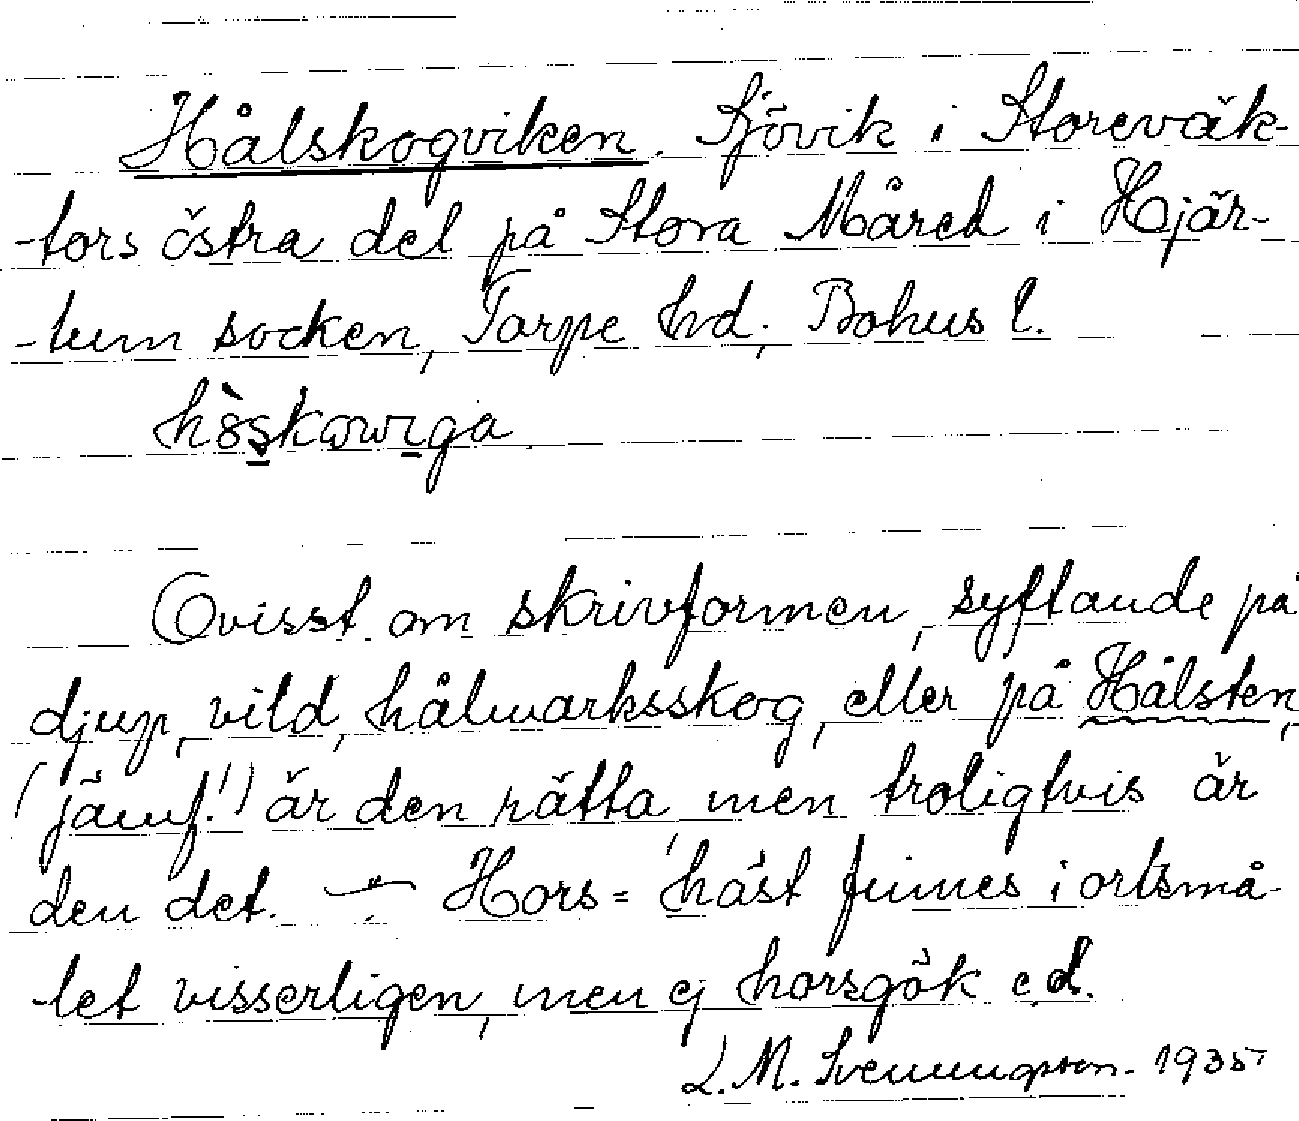 Hålskogviken. Sjövik i Storeväk-
tors östra del på Stora Måred i Hjär-
tum socken, Torpe hd, Bohus l.
Ovisst om skrivformen, syftande på
djup, vild, hålmarksskog, eller på Hålsten,
(jämf.!) är den rätta men troligtvis är
den det. Hors = 'häst' finnes i ortsmå-
let visserligen, men ej horsgök e.d.
L. M. Svenungsson. 1935